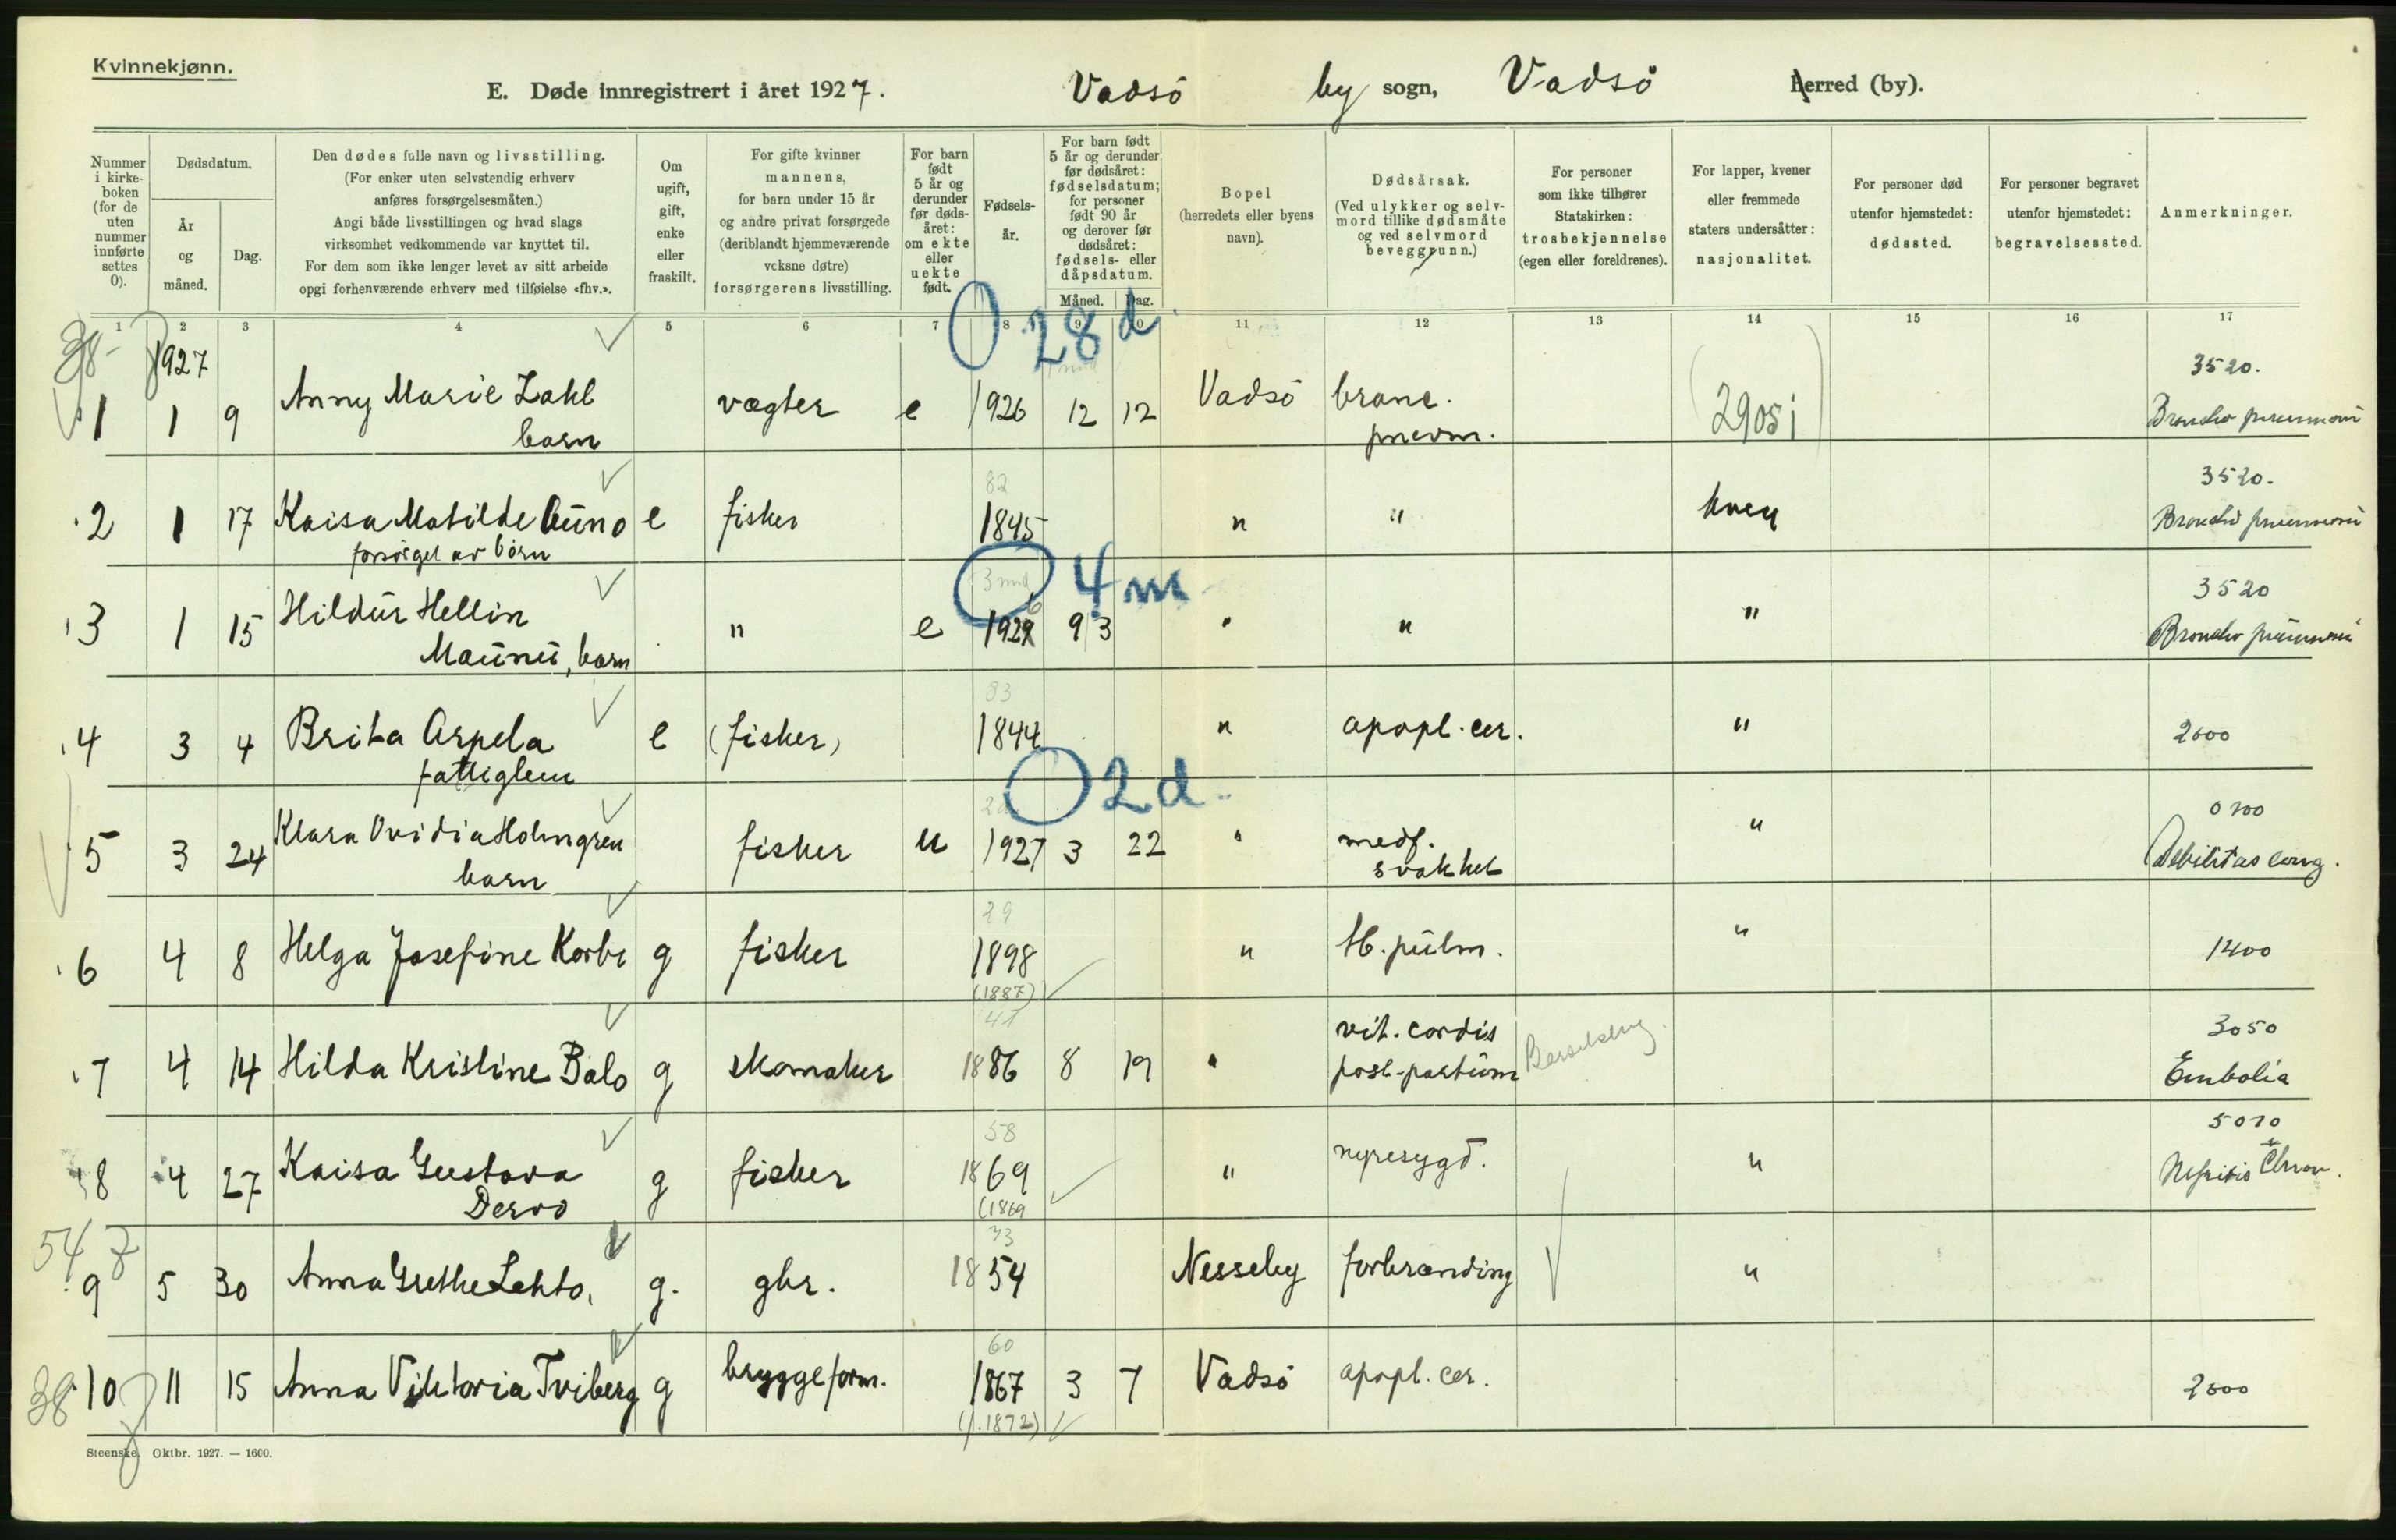 Kvinnekjønn.
E. Døde innregistrert i året 1927. Vadsö by sogn, Vadsö herred (by).
Nummer i kirkeboken (for de uten nummer innførte settes 0).
Dødsdatum.
År og måned.
Dag.
Den dødes fulle navn og livsstilling.
(For enker uten selvstendig erhverv
anføres forsørgelsesmåten.)
Angi både livsstillingen og hvad slags
virksomhet vedkommende var knyttet til.
For dem som ikke lenger levet av sitt arbeide
opgi forhenværende erhverv med tilføielse «fhv.».
Om ugift, gift, enke eller fraskilt.
For gifte kvinner
mannens,
for barn under 15 år
og andre privat forsørgede
(deriblandt hjemmeværende
voksne døtre)
forsørgerens livsstilling.
For barn født 5 år og derunder før dødsåret: om ekte eller uekte født.
Fødselsår.
For barn født
5 år og derunder
før dødsåret:
fødselsdatum;
for personer
født 90 år
og derover før
dødsåret:
fødsels- eller
dåpsdatum.
Måned. Dag.
Bopel
(herredets eller byens
navn).
Dødsårsak.
(Ved ulykker og selv-
mord tillike dødsmåte
og ved selvmord
beveggrunn.)
For personer
som ikke tilhører
Statskirken:
trosbekjennelse
(egen eller foreldrenes).
For lapper, kvener
eller fremmede
staters undersåtter:
nasjonalitet.
For personer død
utenfor hjemstedet:
dødssted.
For personer begravet
utenfor hjemstedet:
begravelsessted.
Anmerkninger.
1 2 3 4 5 6 7 8 9 10 11 12 13 14 15 16 17
38 1927 0 28 d. 3520.
1 1 9 Anny Marie Zahl vægter e 1926 12 12 Vadsö bronc. (2905) Broncho pneumoni
barn pnevm.
82 3520.
2 1 17 Kaisa Matilde Aüno e fisker 1845 " " kven Broncho pneumoni
forsörget av börn
3 mnd 4 m 3520
3 1 15 Hildür Hellin " e 1926 9 3 " " " Broncho pneumoni
Maünü, barn
83
4 3 4 Brita Arpela e (fisker) 1844 " apopl. cer. " 2600
fattiglem
2 d 0 2 d. 0700
5 3 24 Klara Ovidia Holmgren fisker u 1927 3 22 " medf. " Debilitas cong.
barn svakhet
29
6 4 8 Helga Josefine Korbi g fisker 1898 " tb. pülm. " 1400
(1887)
41 vit. cordis 3050
7 4 14 Hilda Kristine Balo g skomaker 1886 8 19 " post-partüm Barselseng. Embolia
58 5010
8 4 27 Kaisa Gustava g fisker 1869 " nyresygd. " Nefritis Chron.
Dervo (1869
54 73
9 5 30 Anna Grethe Lehto, g. gbr. 1854 Nesseby forbrænding "
38 60
10 11 15 Anna Viktoria Tviberg g bryggeform. 1867 3 7 Vadsö apopl. cer. 2600
(f. 1872)
Steenske. Oktbr. 1927. — 1600.